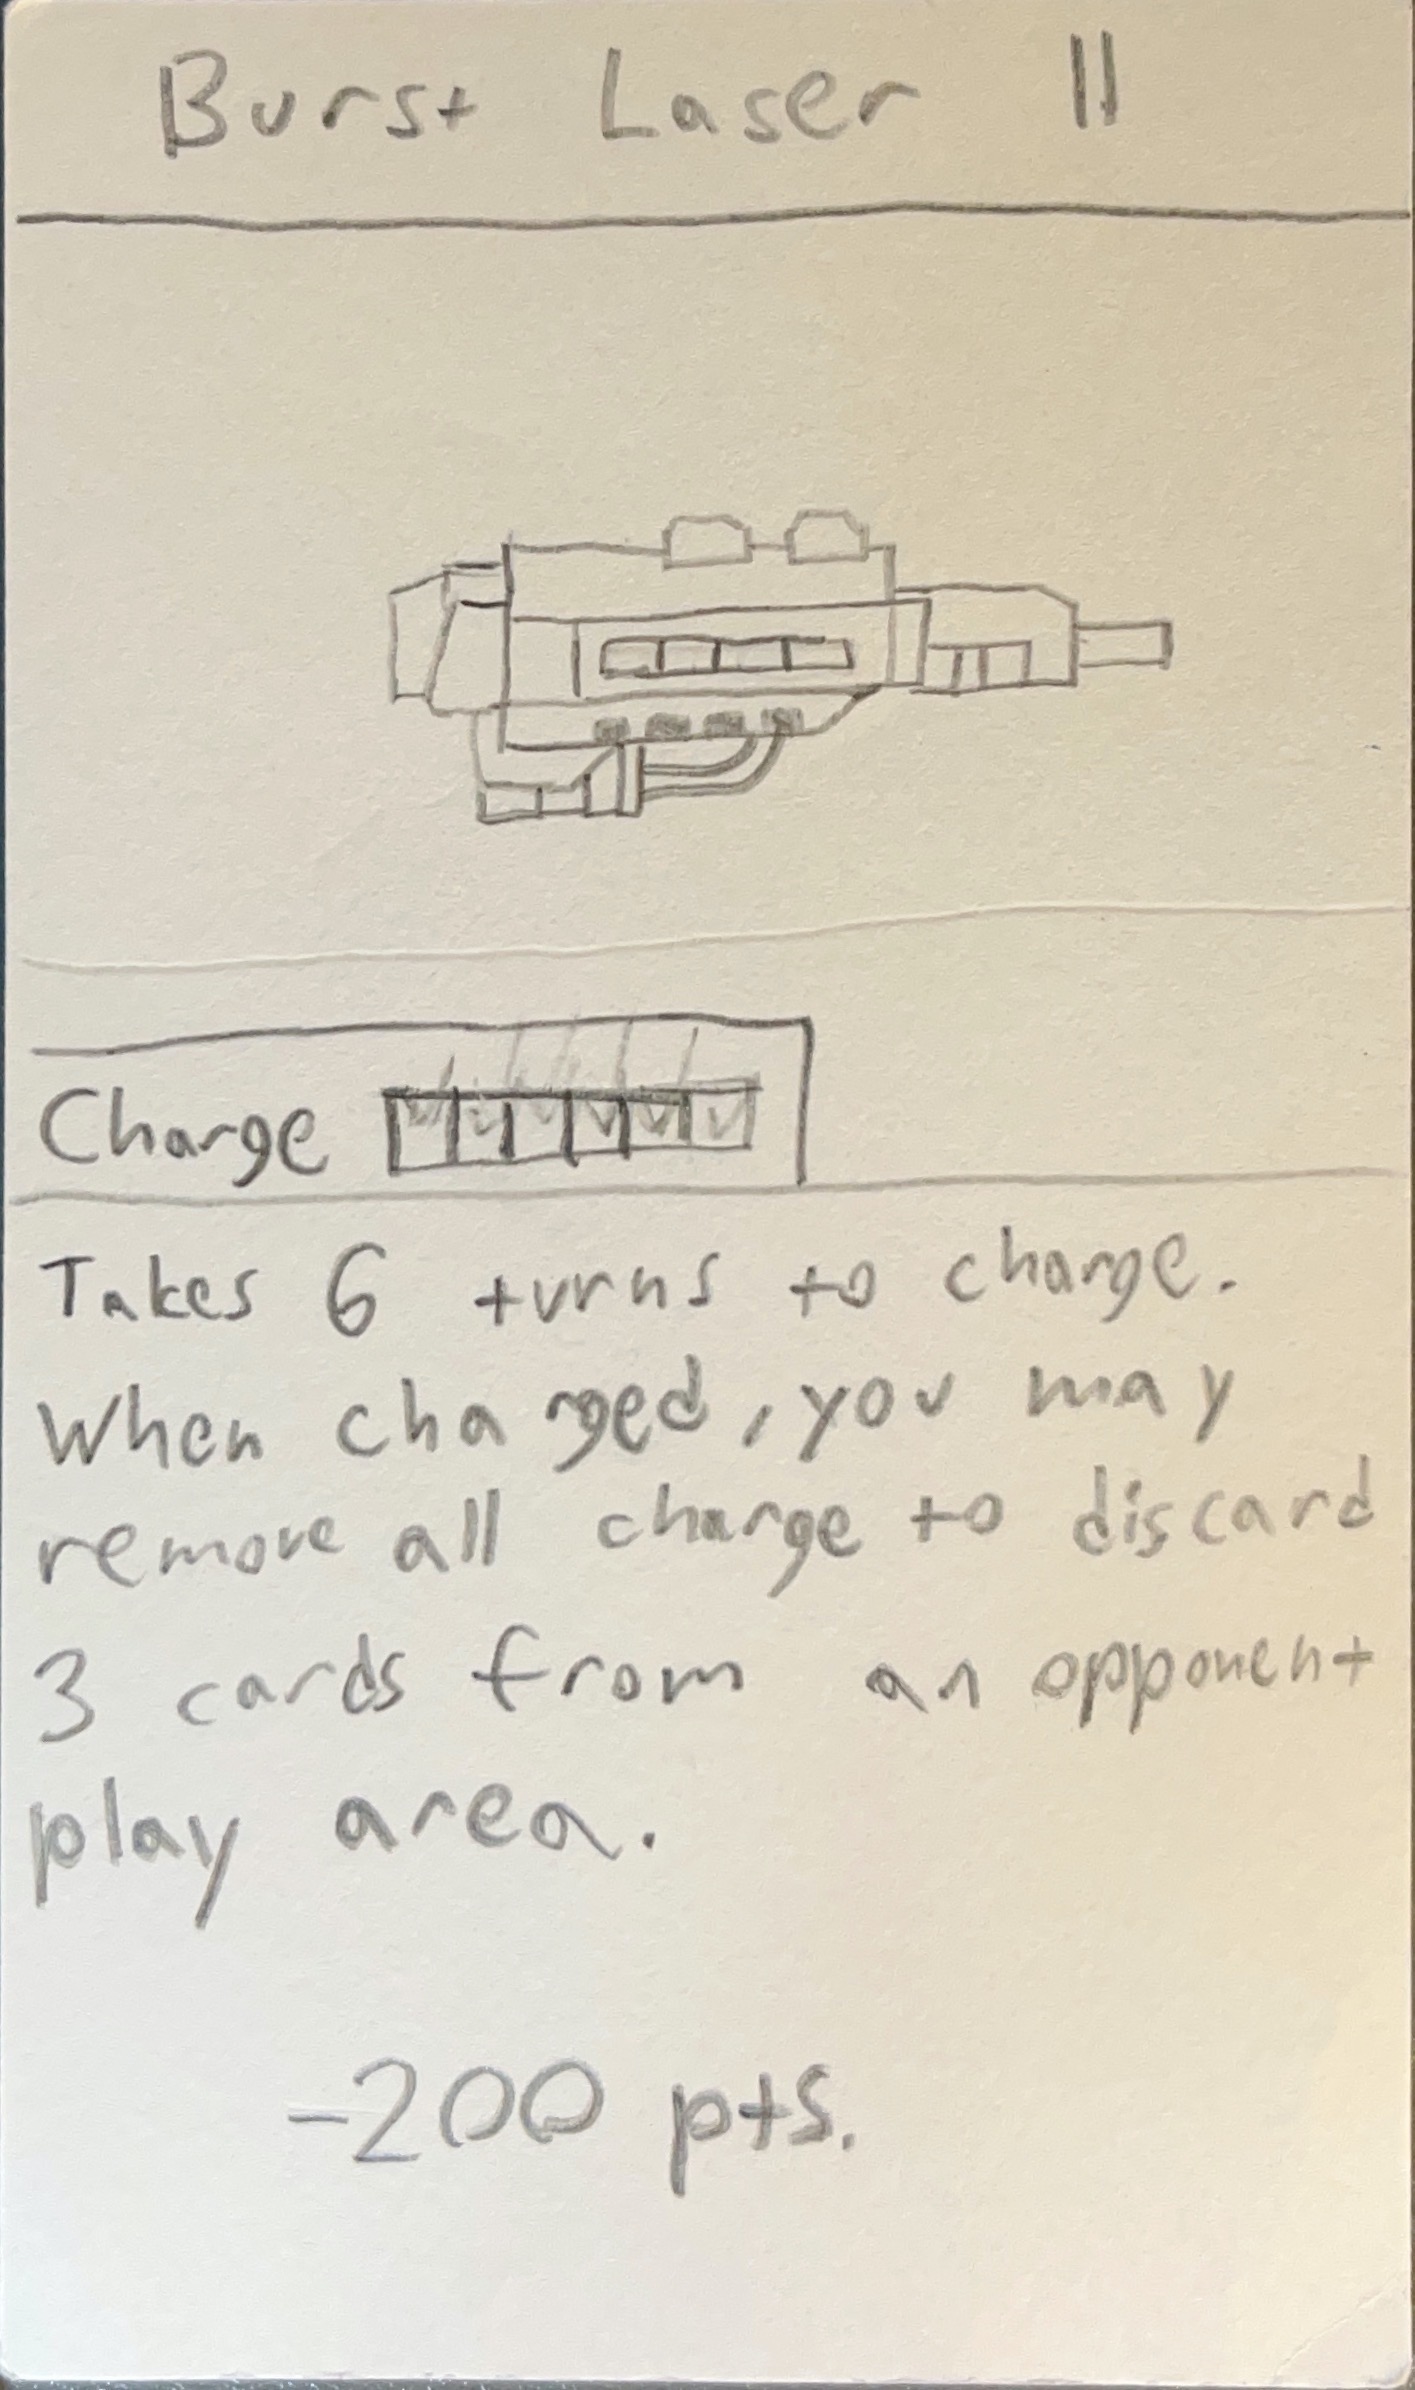 Burst Laser II
Charge
Takes 6 turns to charge.
When charged, you may
remove all charge to discard
3 cards from an opponent
play area.
-200 pts.